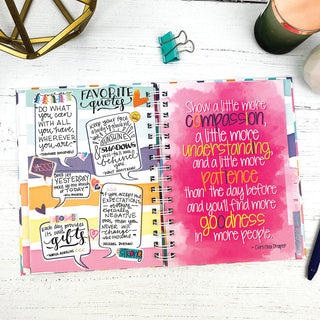 FAVORITE
quotes
DO WHAT
YOU CAN
WITH ALL
YOU HAVE,
WHEREVER
YOU ARE.
THEODORE ROOSEVELT
KEEP YOUR FACE
SHADOWS
will fall
behind
you
WALT WHITMAN
YESTERDAY
TODAY
IF YOU ACCEPT THE
EXPECTATIONS
of others,
ESPECIALLY
NEGATIVE
ones, THEN YOU
NEVER WILL
CHANGE
the outcome
MICHAEL JORDAN
Each day provides
its own
gifts
strong
Show a little more
compassion,
a little more
understanding,
and a little more
patience
than the day before
and you'll find more
goodness
in more people.
- Christina Draper